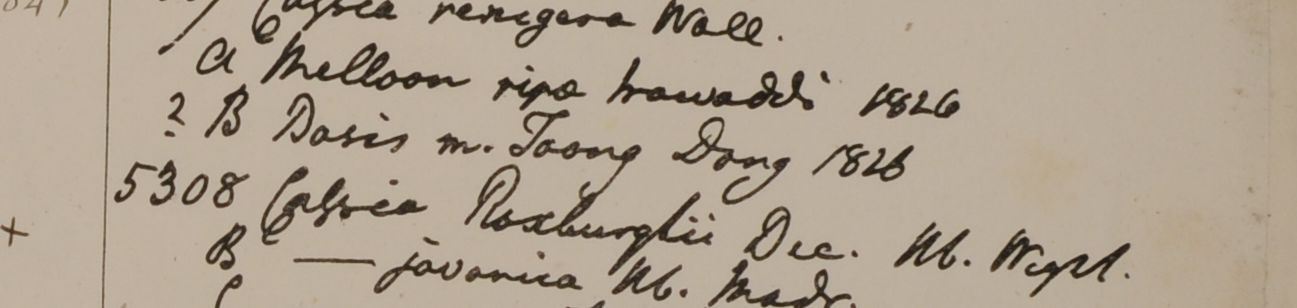 Cassia renigera Wall.
a Melloon ripa Irawaddi 1826
? B Basis m. Toong Dong 1826
5308 Cassia Roxburghii Dec. Hb. Wight.
+
B — javanica Hb. Madr.